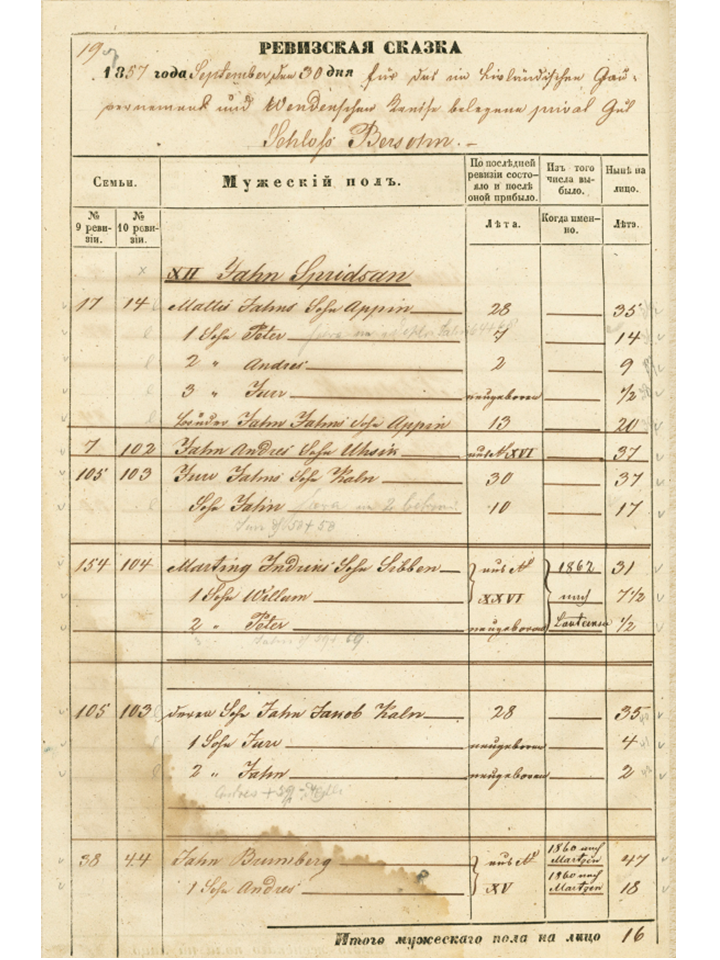 19
РЕВИЗСКАЯ СКАЗКА
1857 года September den 30 дня für das im Livländischen Gou-
vernement und Wendenschen Kreise belegene privat Gut
Schloss Bersohn.
Семьи.
Мужескій полъ.
По последней ревизіи состояло и послѣ оной прибыло.
Изъ того числа выбыло.
Нынѣ на лицо.
№ 9 ревизіи.
№ 10 ревизіи.
Лѣта.
Когда именно.
Лѣта.
XII Jahn Spridsan
17 14 Mattis Jahns Sohn Appin 28 35
1 Sohn Peter 7 14
2 " Andres 2 9
3 " Jurr neugeboren 1/2
Bruder Jahn Jahns Sohn Appin 13 20
7 102 Jahn Andres Sohn Uhsik aus № XVI 37
105 103 Jurr Jahns Sohn Kaln 30 37
Sohn Jahn 10 17
154 104 Marting Indriks Sohn Sibben aus № 1862 31
1 Sohn Willum XXVI nach 7 1/2
2 " Peter neugeboren 1/2
105 103 deren Sohn Jahn Jacob Kaln 28 35
1 Sohn Jurr neugeboren 4
2 " Jahn neugeboren 2
38 44 Jahn Bumberg aus № 1860 nach Martzen 47
1 Sohn Andres XV 1860 nach Martzen 18
Итого мужескаго пола на лицо 16